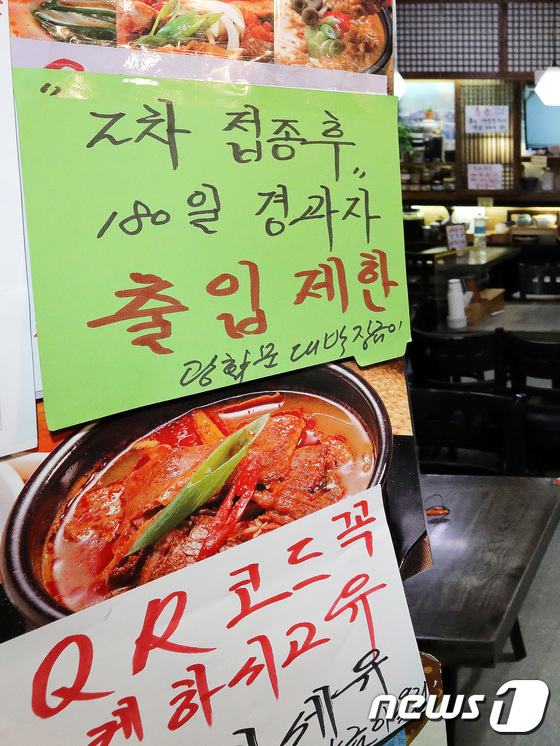 "2차 접종후"
180일 경과자
출입제한
광화문 대박장금이
QR 코드 꼭
케하시고유
news1